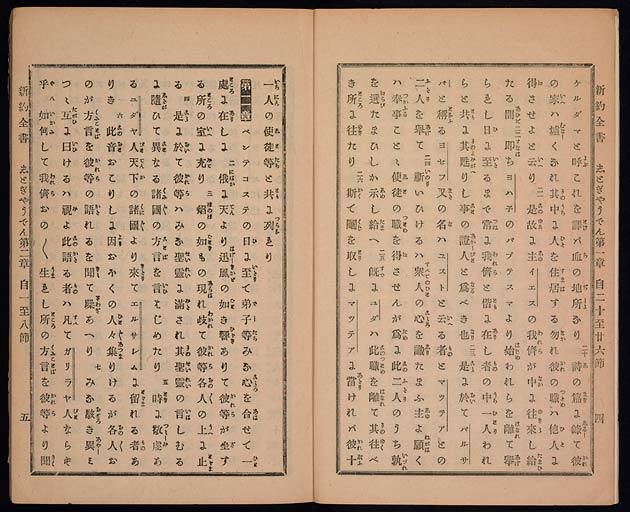 新約全書 志とぎやうでん第一章 自二十至廿六節 四
ケルダマと呼これを譯バ血の地所なり 二十 詩の篇に錄て彼
の家ハ墟くなれ其中に人を住居する勿れ彼の職ハ他人に
得させよと云り 是故に主イエスの我儕が中に往來し給
たる間 即ちヨハ子のバプテスマより始われらを離て擧
られし日に至るまで常に我儕と偕に在し者の中一人われ
らと共に其甦りし事の證人と爲べき也 是に於てバルサ
バと稱るヨセフ又の名ハユストと云る者とマツテアとの
二人を擧て 祈いひけるハ衆人の心を識たまふ主よ願く
ハ奉事ことと使徒の職を得させんが爲に此二人のうち孰
を選たまひしか示し給へ 既にユダハ此職を離て其往べ
き所に往たり 斯て鬮を取しにマツテアに當けれバ彼十
一人の使徒等と共に列れり
第二章 ペンテコステの日に至て弟子等みな心を合せて一
處に在しに 俄に天より迅風の如き響ありて彼等が坐す
る所の室に充り 焔の如もの現れ岐て彼等各人の上に止
る 四 是に於て彼等ハみな聖靈に滿され其聖靈の言しむる
に隨ひて異なる諸國の方言を言はじめたり 五 時に敬虔あ
るユダヤ人天下の諸國より來てエルサレムに留れる者あ
りき 六 此音おこりしに因おほくの人々集りけるが各人お
のが方言を彼等の語れるを聞て騷あへり みな駭き異み
つゝ互に曰けるハ視よ此語る者ハ凡てガリラヤ人ならず
乎 如何して我儕おの〱生れし所の方言を彼等より聞
新約全書 志とぎやうでん第二章 自一至八節 五